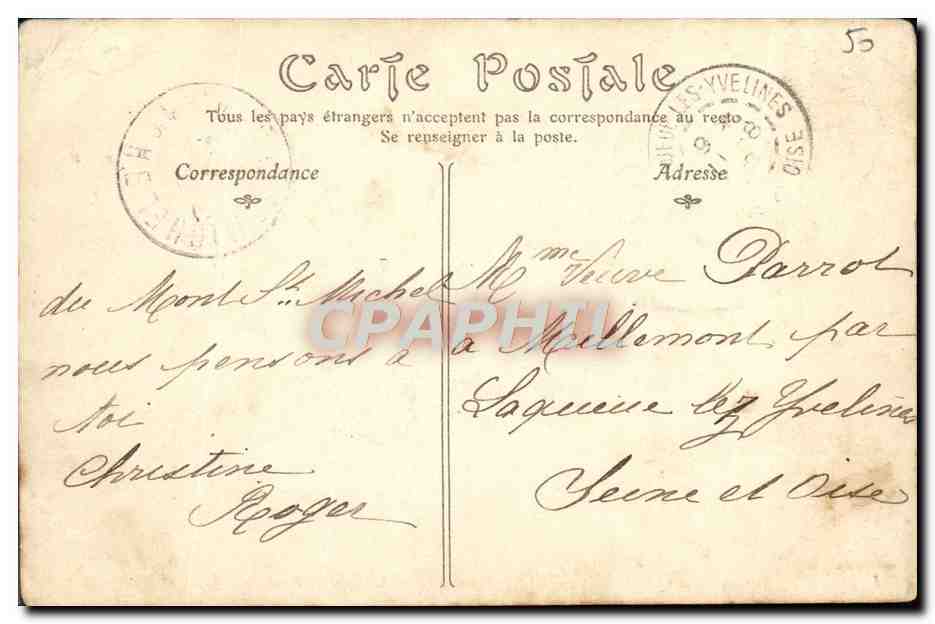 50
Carte Postale
Tous les pays étrangers n'acceptent pas la correspondance au recto
Se renseigner à la poste.
Correspondance
Adresse
YVELINES
du Mont St. Michel
nous pensons à
toi
Christine
Roger
Mme Veuve Parrot
a Maillemont par
Laqueue lez Yvelines
Seine et Oise
CPAPHIL